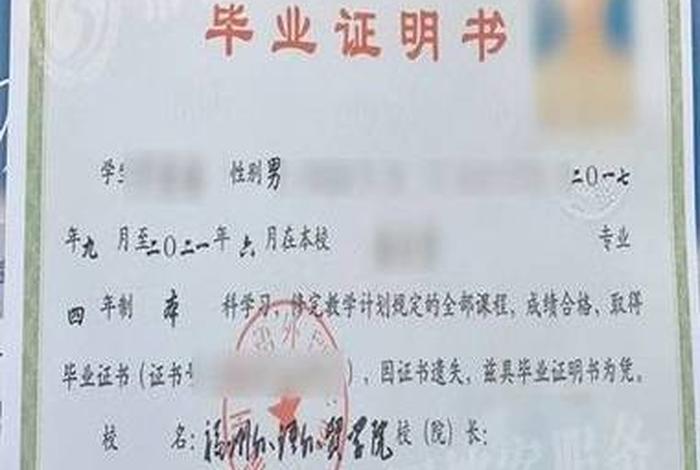 毕业证明书
学生 性别男 二〇一七
年九月至二〇二一年六月在本校 专业
四年制本科学习，修完教学计划规定的全部课程，成绩合格，取得
毕业证书（证书号 ），因证书遗失，兹具毕业证明书为凭。
校 名：福州外语外贸学院 校（院）长：